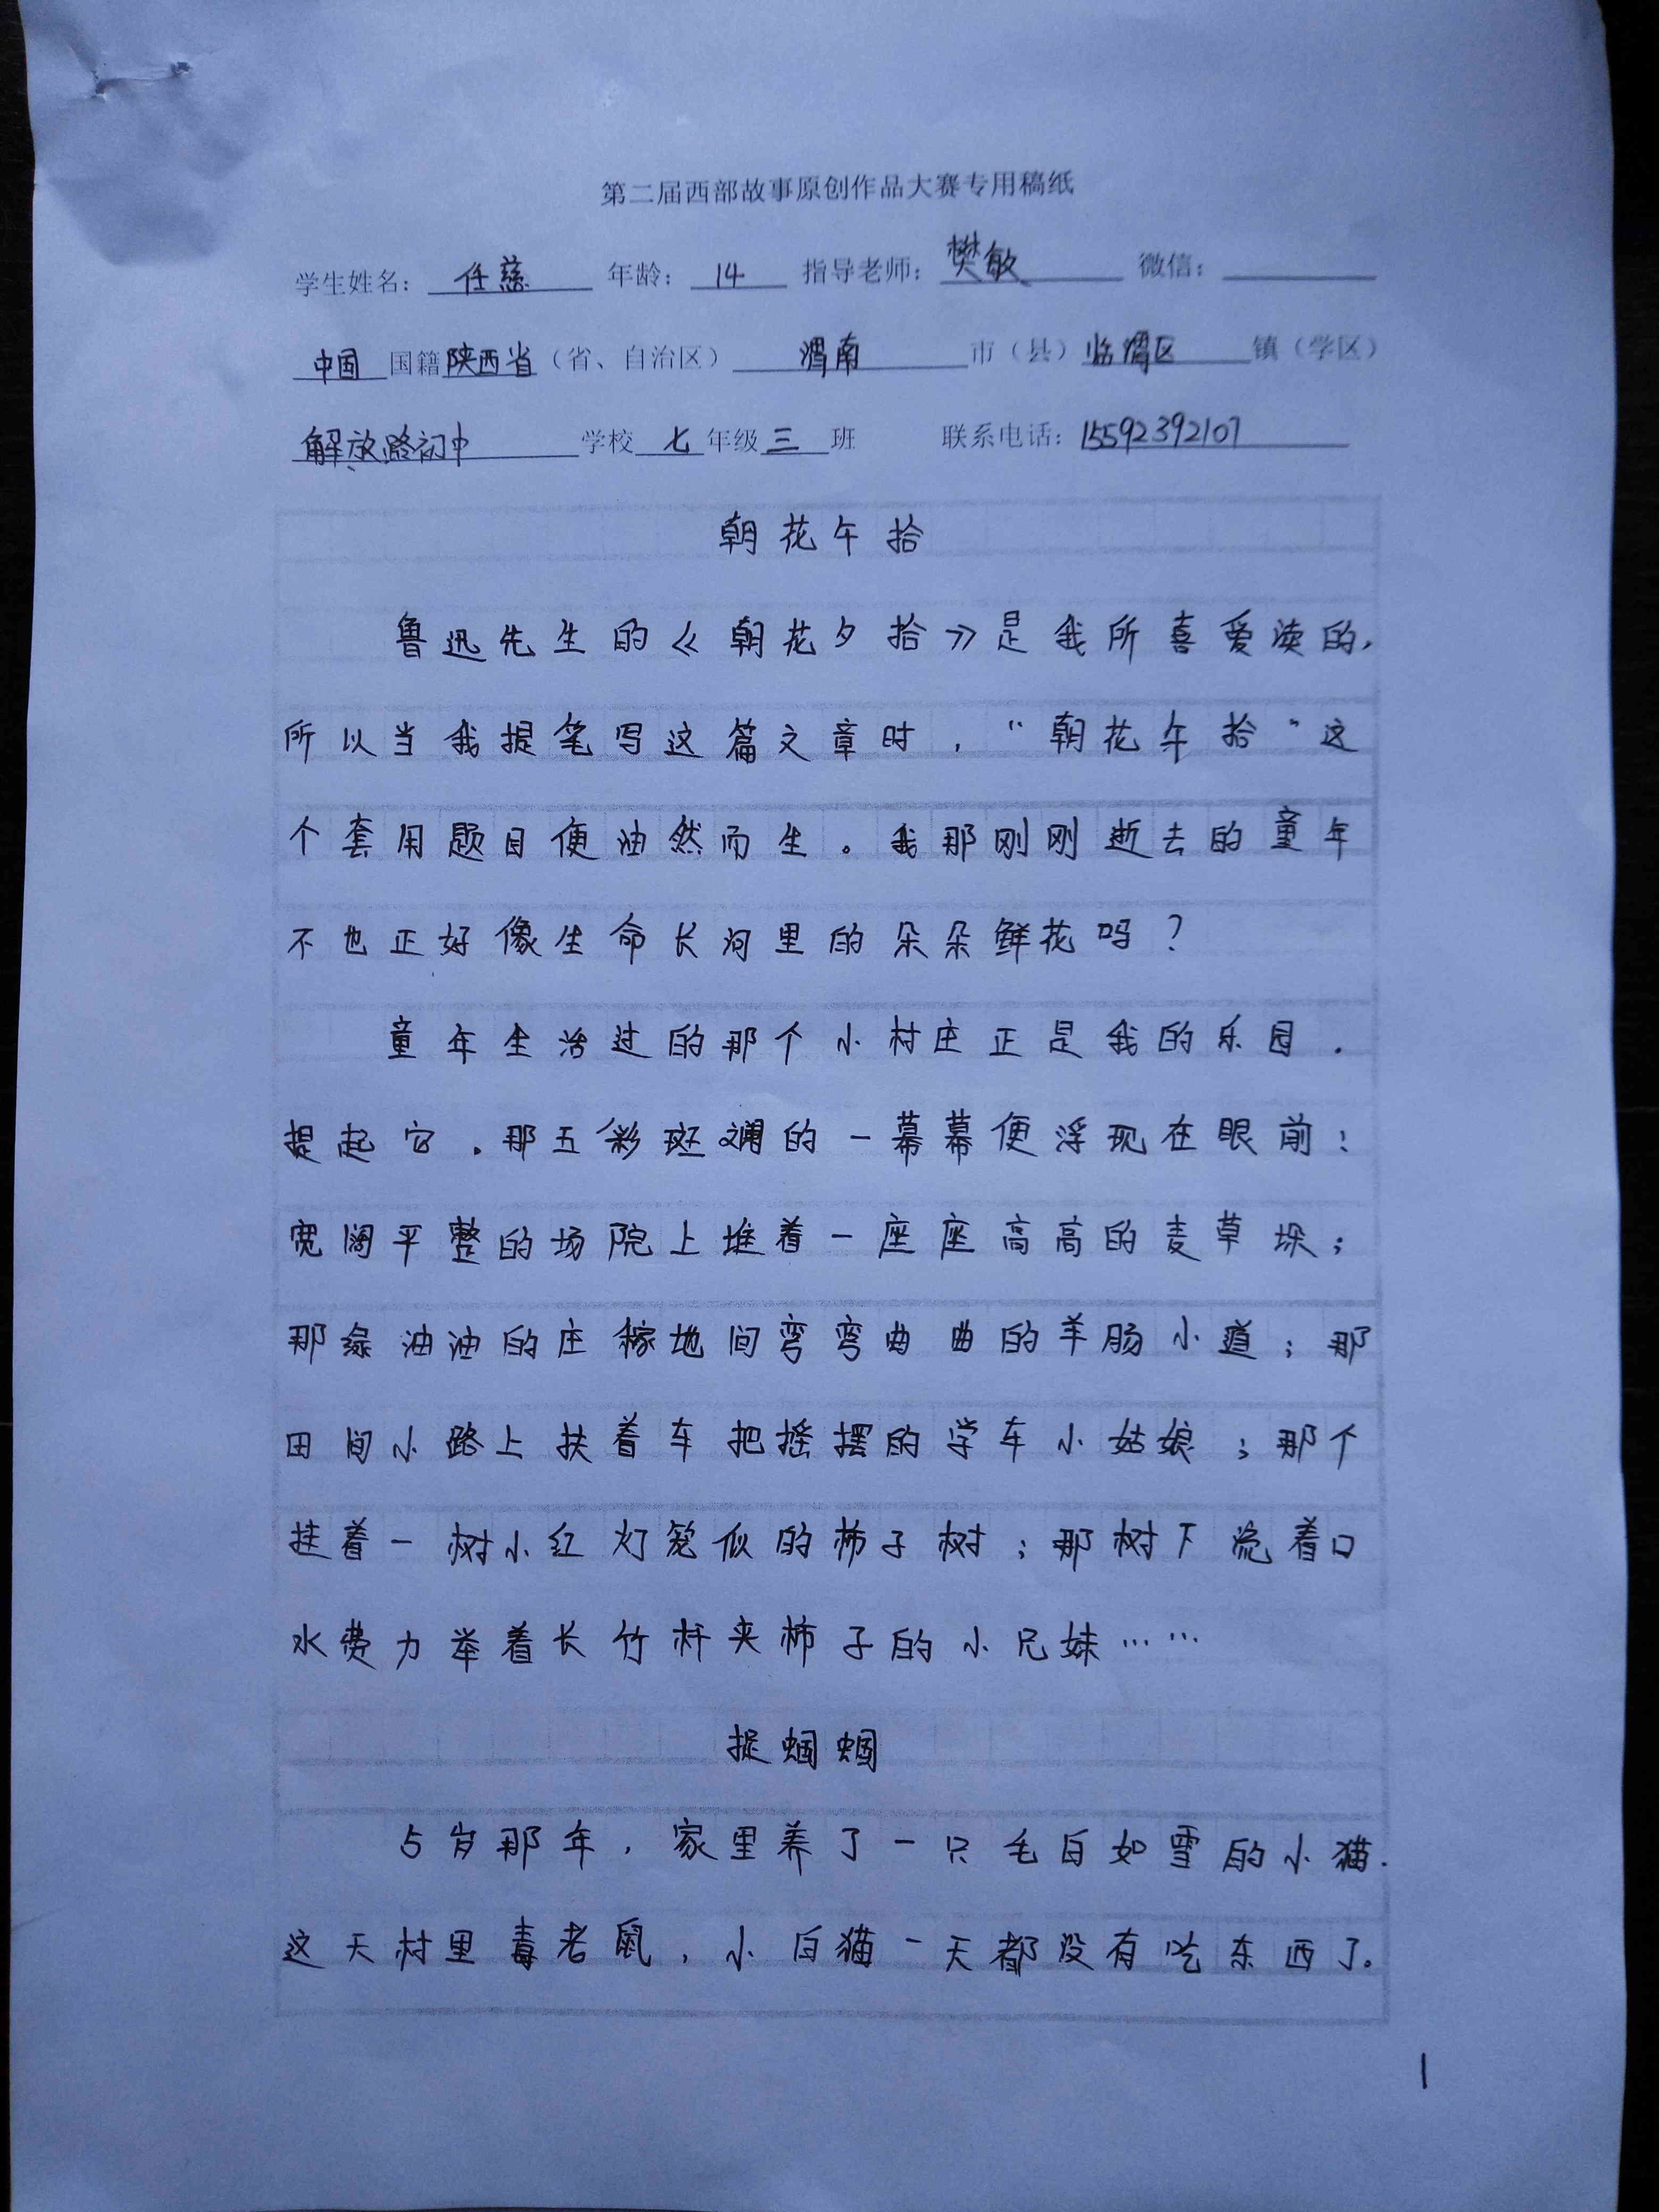 第二届西部故事原创作品大赛专用稿纸
学生姓名：任慈 年龄：14 指导老师：樊敏 微信：
中国国籍陕西省（省、自治区）渭南市（县）临渭区镇（学区）
解放路初中学校七年级三班 联系电话：15592392107
朝花午拾
鲁迅先生的《朝花夕拾》是我所喜爱读的，
所以当我提笔写这篇文章时，“朝花午拾”这
个套用题目便油然而生。我那刚刚逝去的童年
不也正好像生命长河里的朵朵鲜花吗？
童年生活过的那个小村庄正是我的乐园．
提起它．那五彩斑斓的一幕幕便浮现在眼前：
宽阔平整的场院上堆着一座座高高的麦草垛；
那绿油油的庄稼地间弯弯曲曲的羊肠小道；那
田间小路上扶着车把摇摆的学车小姑娘；那个
挂着一树小红灯笼似的柿子树；那树下流着口
水费力举着长竹杆夹柿子的小兄妹……
捉蝈蝈
5岁那年，家里养了一只毛白如雪的小猫．
这天村里毒老鼠，小白猫一天都没有吃东西了。
1